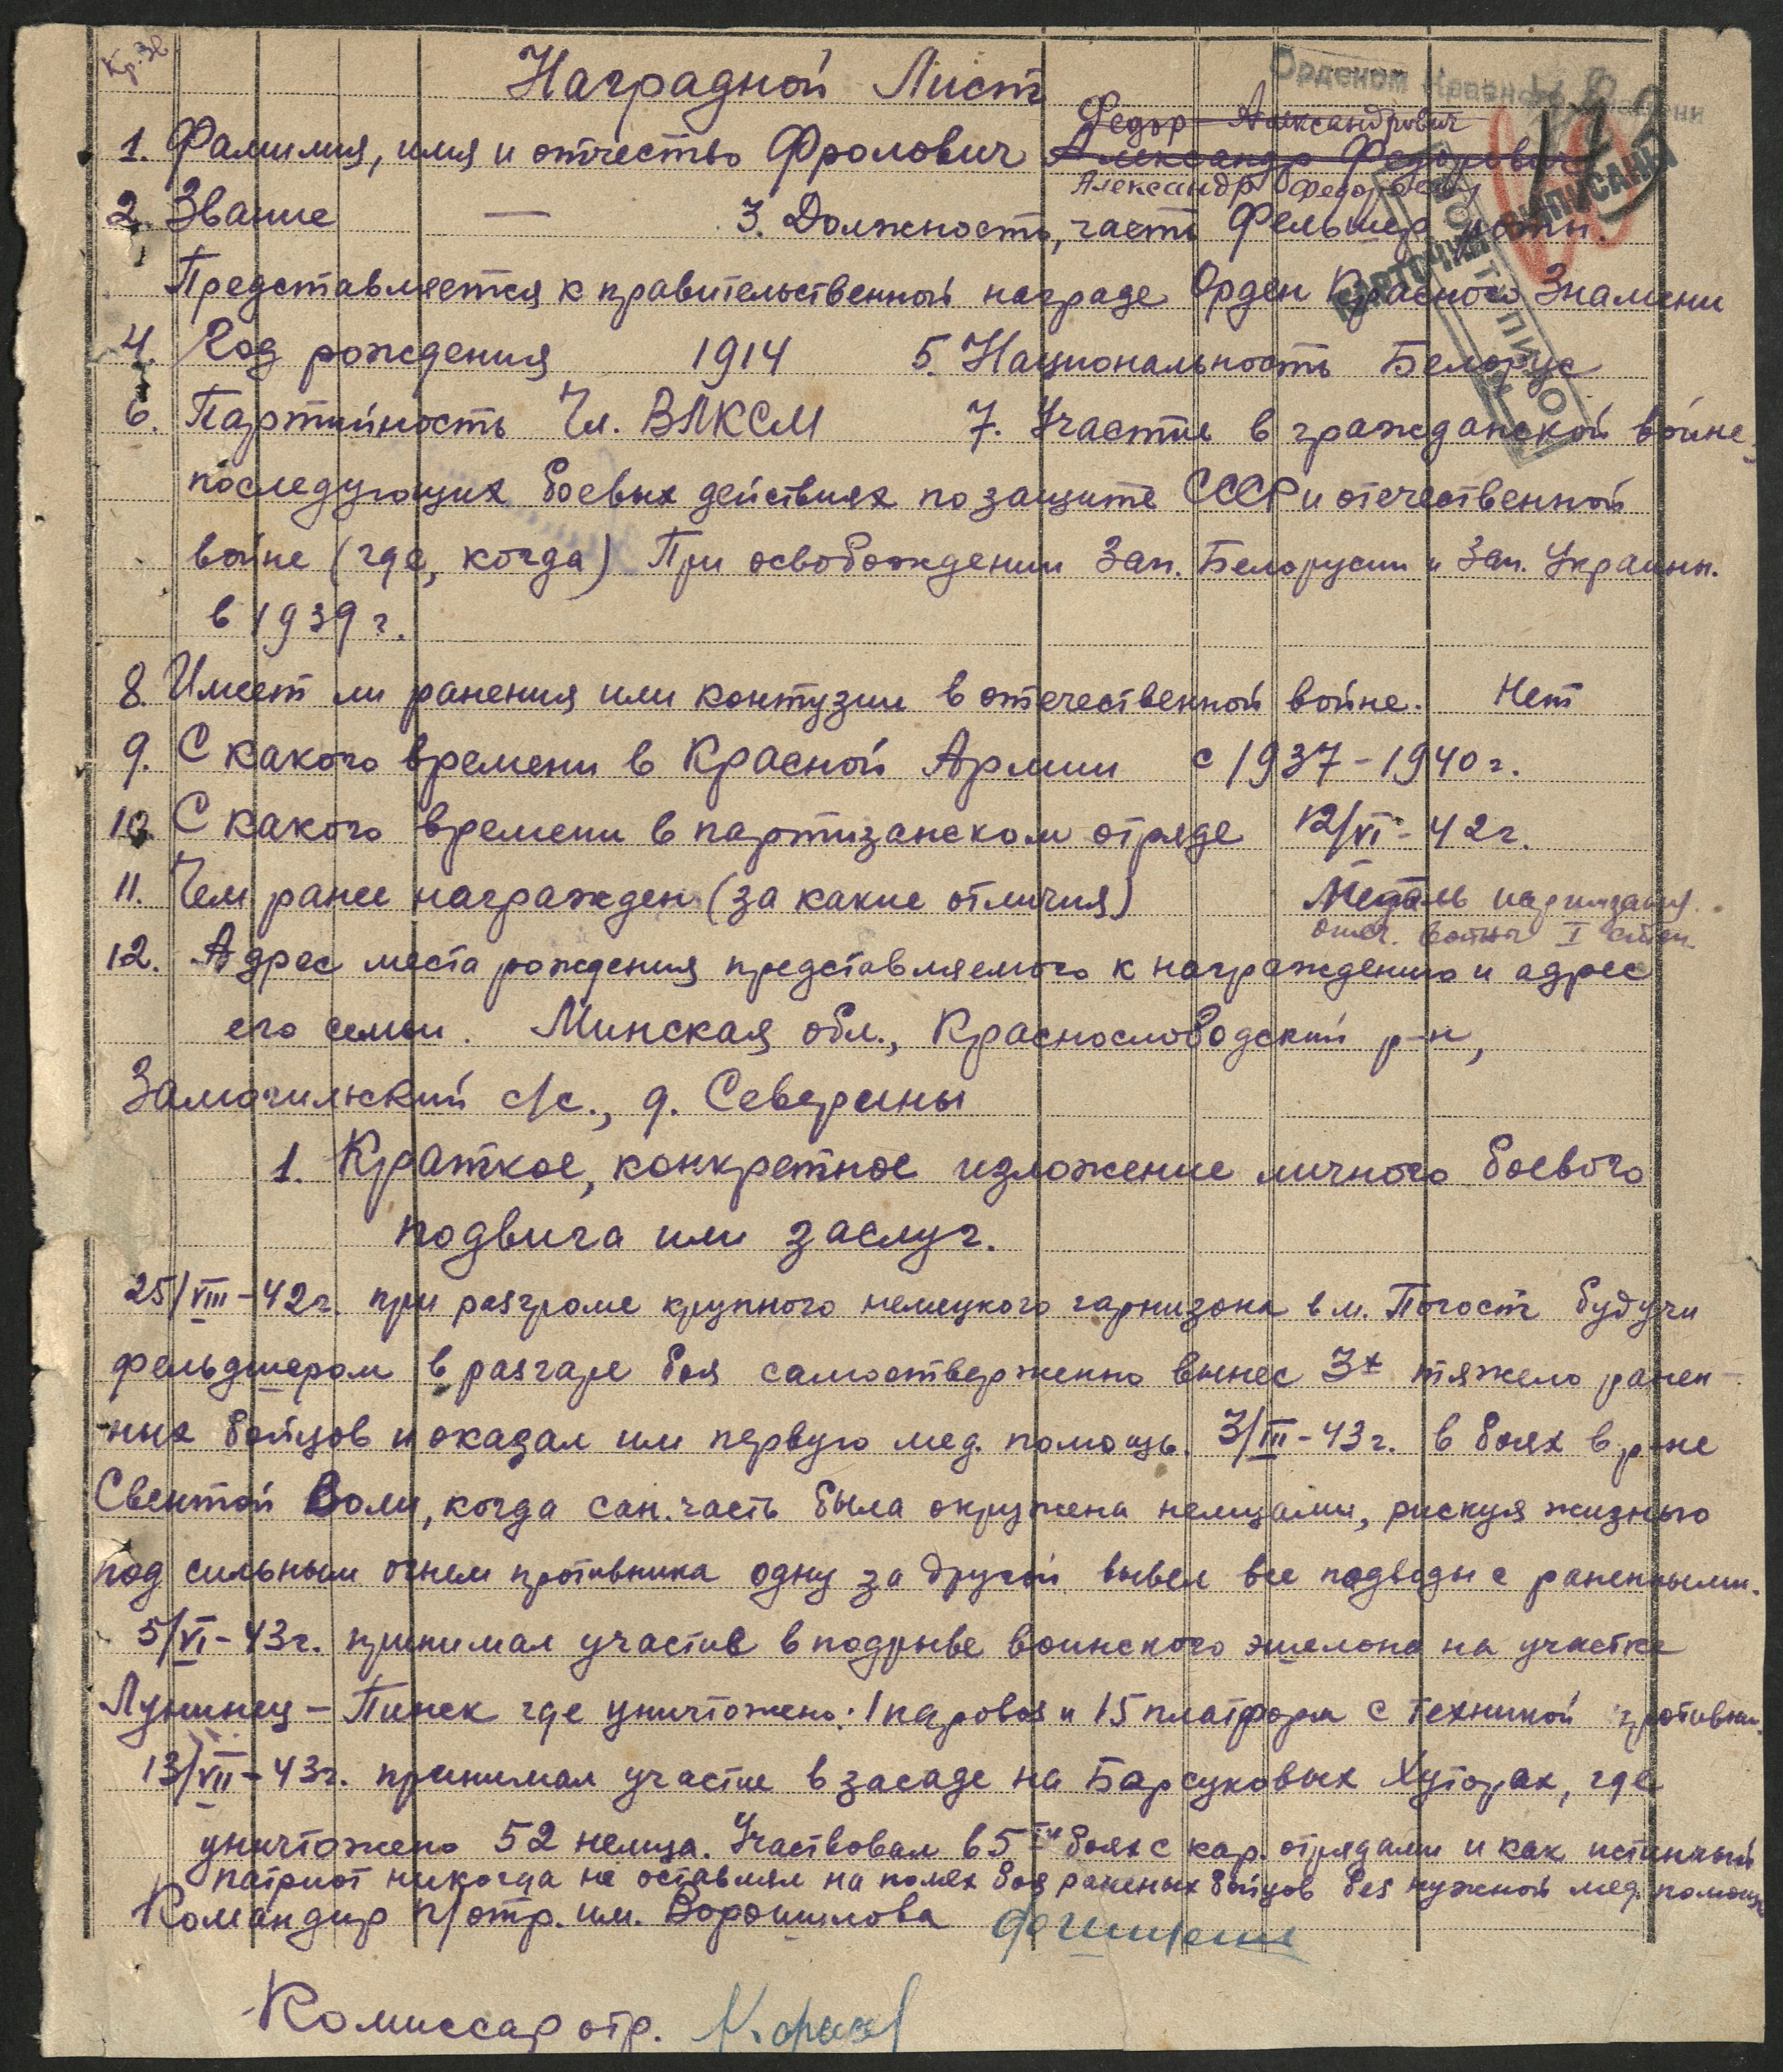 Кр. Зн
Наградной Лист
Орденом Красного Знамени
Федор Александрович
1. Фамилия, имя и отчество Фролович Александр Федорович
Александр Федорович
2. Звание — 3. Должность, часть Фельшер роты.
КАРТОЧКИ ВЫПИСАНЫ
Представляется к правительственной награде Орден Красного Знамени
4. Год рождения 1914 5. Национальность Белорус
6. Партийность Чл. ВЛКСМ 7. Участие в гражданской войне,
последующих боевых действиях по защите СССР и отечественной
войне (где, когда) При освобождении Зап. Белорусии и Зап. Украины.
в 1939 г.
8. Имеет ли ранения или контузии в отечественной войне. Нет
9. С какого времени в Красной Армии с 1937-1940 г.
10. С какого времени в партизанском отряде 12/VI-42г.
11. Чем ранее награжден (за какие отличия) Медаль партизана
отеч. войны I степ.
12. Адрес места рождения представляемого к награждению и адрес
его семьи. Минская обл., Краснослободский р-н,
Замогильский с/с., д. Северины
1. Краткое, конкретное изложение личного боевого
подвига или заслуг.
25/VIII-42г. при разгроме крупного немецкого гарнизона в м. Погост будучи
фельдшером в разгаре боя самоотверженно вынес 3х тяжело ранен-
ных бойцов и оказал им первую мед. помощь. 3/III-43г. в боях в р-не
Свентой Воли, когда сан. часть была окружена немцами, рискуя жизнью
под сильным огнем противника одну за другой вывел все подводы с раненными.
5/VI-43г. принимал участие в подрыве воинского эшелона на участке
Лунинец - Пинск где уничтожено: 1 паровоз и 15 платформ с техникой противни.
13/VII-43г. принимал участие в засаде на Барсуковых Хуторах, где
уничтожено 52 немца. Участвовал в 5ти боях с кар. отрядами и как истинный
патриот никогда не оставлял на полях боя раненых бойцов без нужной мед. помощи
Командир п/отр. им. Ворошилова
Комиссар отр.